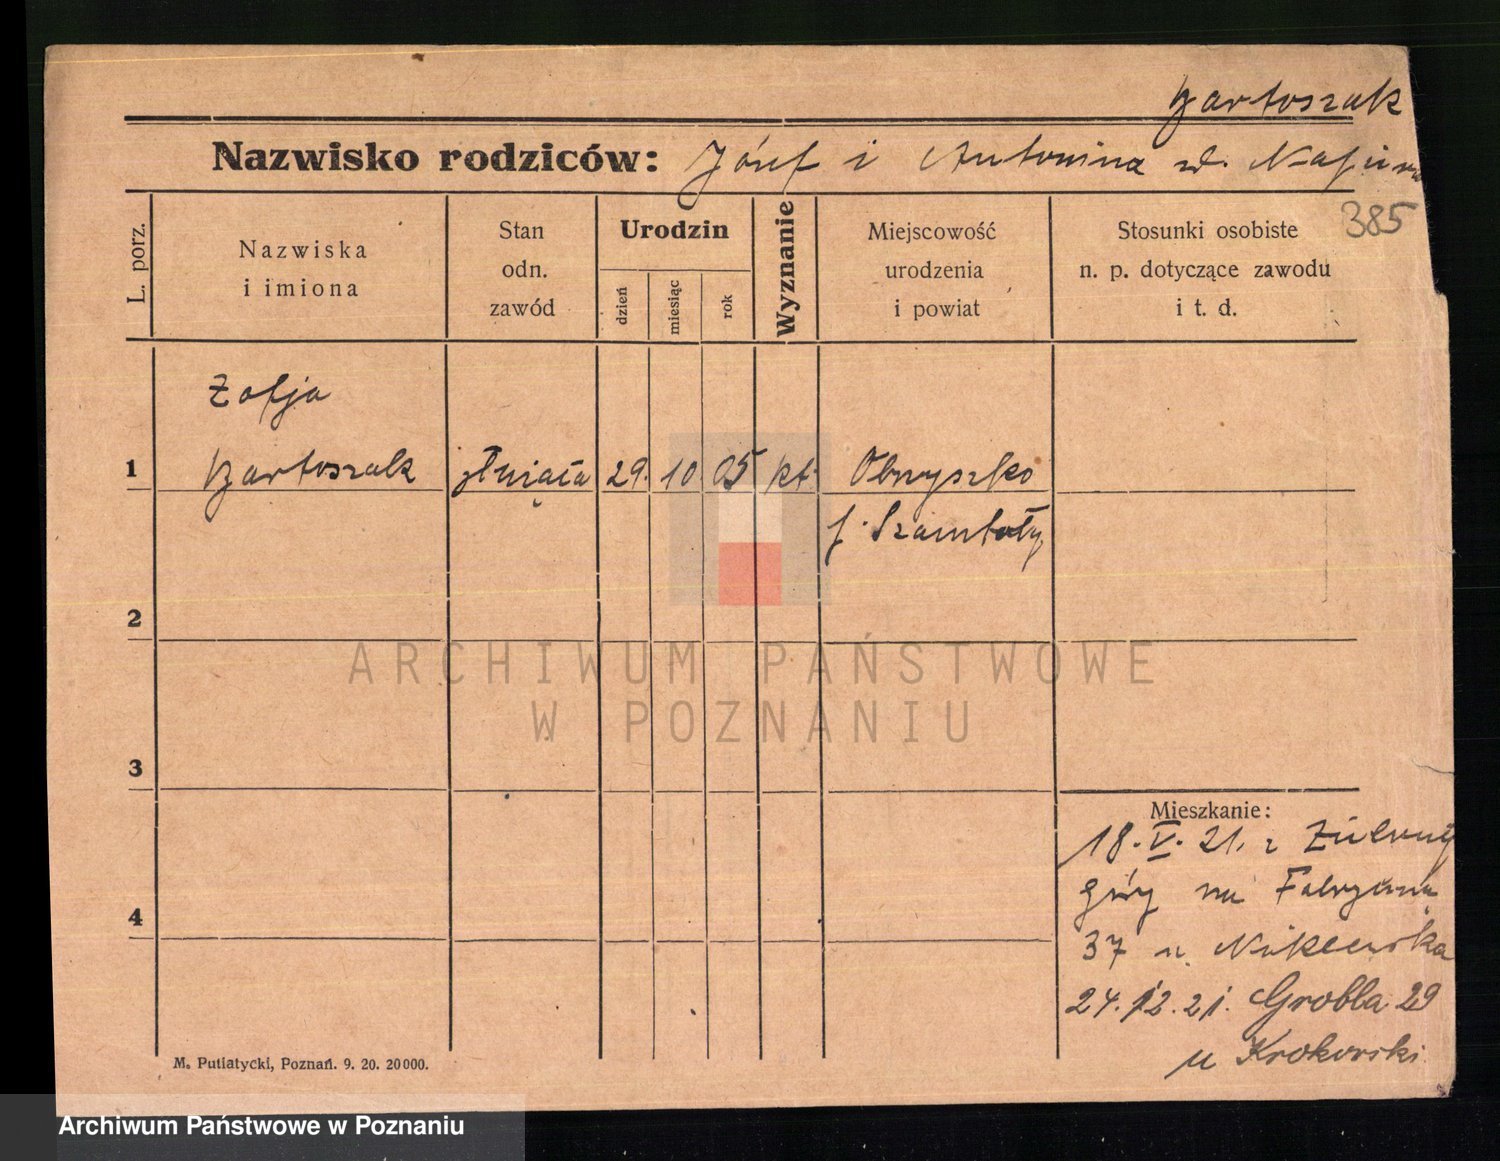 Bartoszak
Nazwisko rodziców: Józef i Antonina
385
L. porz.
Nazwiska
i imiona
Stan
odn.
zawód
Urodzin
dzień
miesiąc
rok
Wyznanie
Miejscowość
urodzenia
i powiat
Stosunki osobiste
n. p. dotyczące zawodu
i t. d.
Zofja
1 Bartoszak 29. 10 05 kt. Obrzysko
Szamotuły
2
3
4
Mieszkanie:
18. V. 21. z
góry na
37 u
24. 12. 21. Grobla 29
u Krokorski
M. Putiatycki, Poznań. 9. 20. 20000.
ARCHIWUM PAŃSTWOWE
W POZNANIU
Archiwum Państwowe w Poznaniu